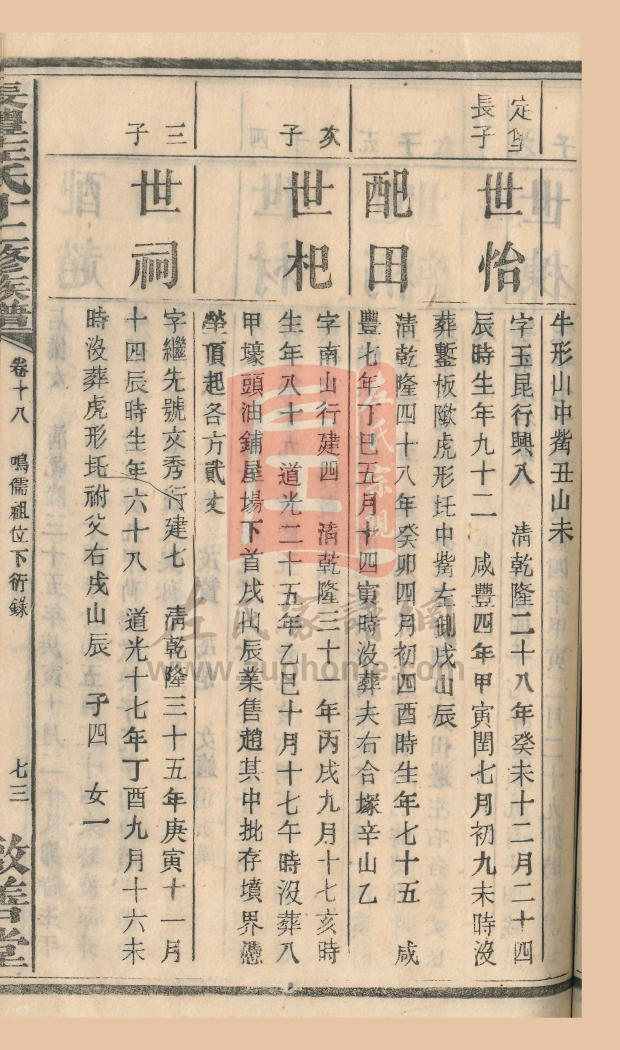 牛形山中觜丑山未
定
長子
世怡
字玉昆行興八 清乾隆二十八年癸未十二月二十四
辰時生年九十二 咸豐四年甲寅閏七月初九未時沒
葬鏨板陬虎形圫中觜左側戌山辰
配田
清乾隆四十八年癸卯四月初四酉時生年七十五 咸
豐七年丁巳五月十四寅時沒葬夫右合塚辛山乙
次子
世杞
字南山行建四 清乾隆三十一年丙戌九月十七亥時
生年八十 道光二十五年乙巳十月十七午時沒葬八
甲壕頭油鋪屋場下首戌山辰業售趙其中批存墳界憑
塋頂起各方貳丈
三子
世祠
字繼先號文秀行建七 清乾隆三十五年庚寅十一月
十四辰時生年六十八 道光十七年丁酉九月十六未
時沒葬虎形圫祔父右戌山辰 子四 女一
長澧左氏十二修族譜
卷十八 鳴儒祖位下衍錄
七三
敬善堂
左氏宗親
左氏家譜網
www.zuqhome.com